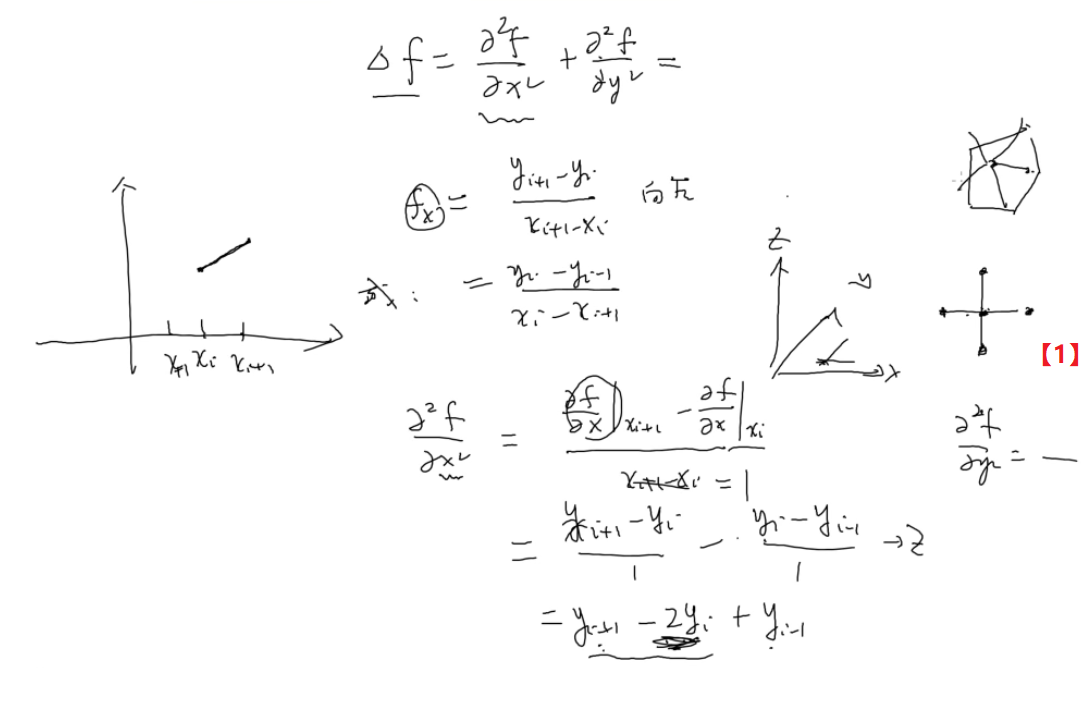 Δf = ∂²f/∂x² + ∂²f/∂y² =
f_x = (y_{i+1} - y_i)/(x_{i+1} - x_i) 向
= (y_i - y_{i-1})/(x_i - x_{i+1})
x_i x_{i+1}
z
y
x
【1】
∂²f/∂x² = (∂f/∂x|_{x_{i+1}} - ∂f/∂x|_{x_i})/(x_{i+1} - x_i) = 1
∂²f/∂y² = —
= (y_{i+1} - y_i)/1 - (y_i - y_{i-1})/1 → z
= y_{i+1} - 2y_i + y_{i-1}